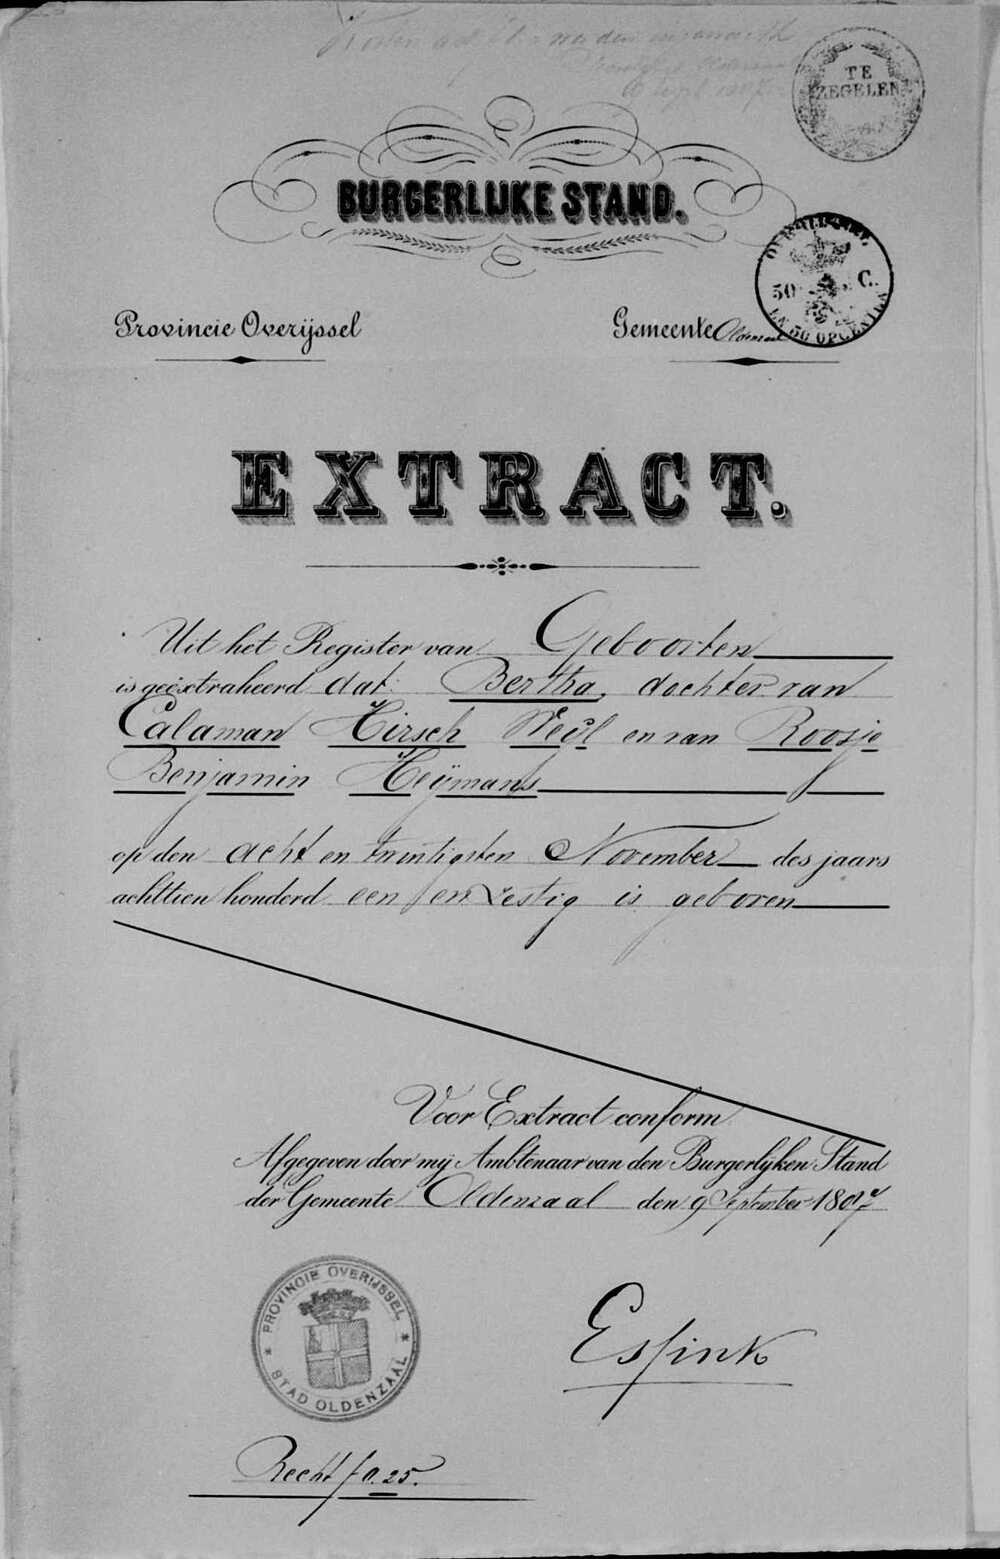 TE
ZEGELEN
BURGERLIJKE STAND.
OVERIJSSEL
50 C.
EN 50 OPCENTEN
Provincie Overijssel
Gemeente Oldenzaal
EXTRACT.
Uit het Register van Geboorten
is geëxtraheerd dat: Bertha, dochter van
Calaman Hirsch Weijl en van Roosje
Benjamin Heijmans
op den acht en twintigsten November des jaars
achttien honderd een en zestig is geboren
Voor Extract conform
Afgegeven door mij Ambtenaar van den Burgerlijken Stand
der Gemeente Oldenzaal den 9 September 1897
PROVINCIE OVERIJSSEL
STAD OLDENZAAL
Essink
Recht f 0.25.